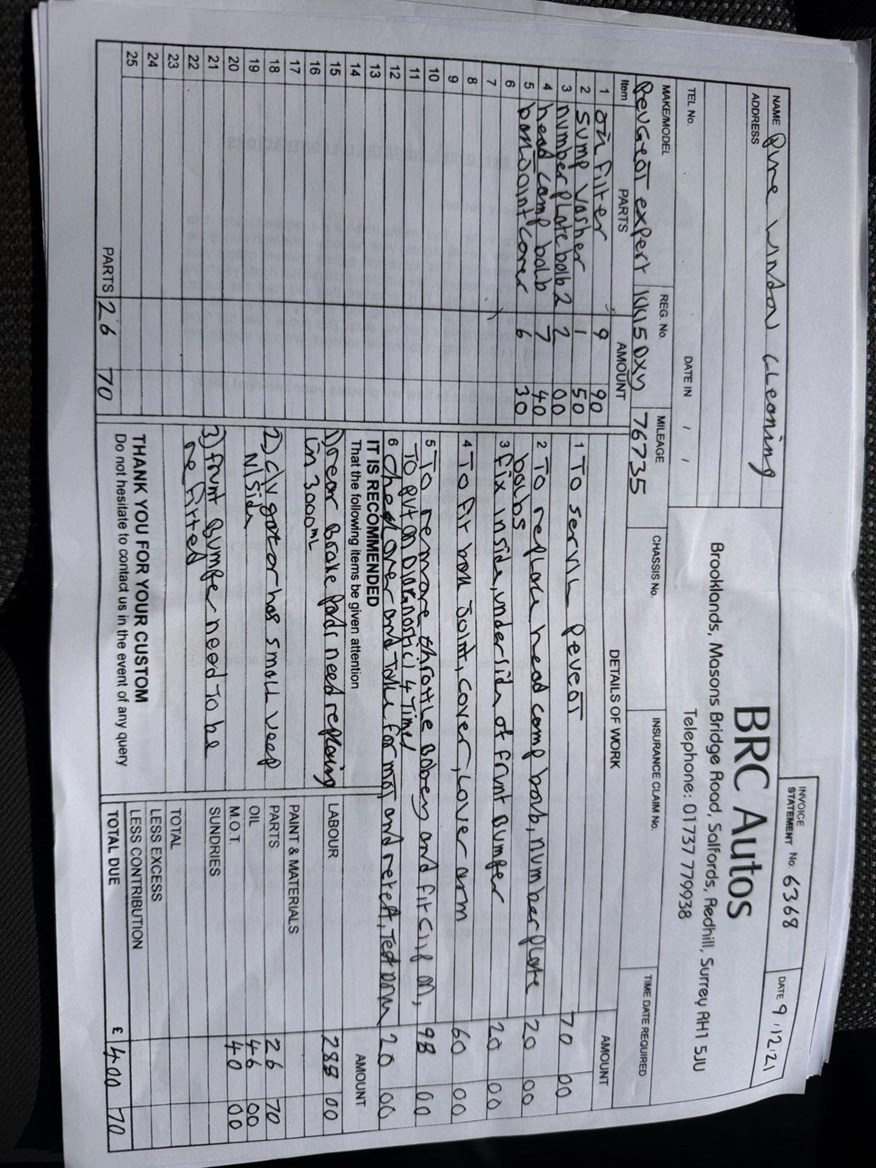 INVOICE
STATEMENT No 6368
DATE 9/12/21
NAME Pure Window Cleaning
ADDRESS
BRC Autos
Brooklands, Masons Bridge Road, Salfords, Redhill, Surrey RH1 5JU
Telephone: 01737 779938
TEL No.
DATE IN / /
MAKE/MODEL REG. No. MILEAGE CHASSIS No. INSURANCE CLAIM No. TIME DATE REQUIRED
Peugeot expert KV15 DXY 76735
Item PARTS AMOUNT DETAILS OF WORK AMOUNT
1 oil filter 9 90
2 sump washer 1 50
3 number plate bolb 2 2 00
4 head lamp bolb 7 40
5 ball joint cover 6 30
6
7
8
9
10
11
12
13
14
15
16
17
18
19
20
21
22
23
24
25
PARTS 26 70
1 To service Peugeot 70 00
2 To replace head lamp bolb, number plate 20 00
bolbs
3 fix inside, underside of front bumper 20 00
4 To fit ball joint, cover, lower arm 60 00
5 To remove throttle body and fit clip on, 98 00
To put on Diagnostic 4 times
6 check over and Take for mot and retest, Test 20 00
IT IS RECOMMENDED
That the following items be given attention
1) rear Brake Pads need replacing
in 3000 mL
2) c/v gator has small weep
N/Side
3) front bumper need to be
re fitted
THANK YOU FOR YOUR CUSTOM
Do not hesitate to contact us in the event of any query
AMOUNT
LABOUR 288 00
PAINT & MATERIALS
PARTS 26 70
OIL 46 00
M.O.T. 40 00
SUNDRIES
TOTAL
LESS EXCESS
LESS CONTRIBUTION
TOTAL DUE £ 400 70